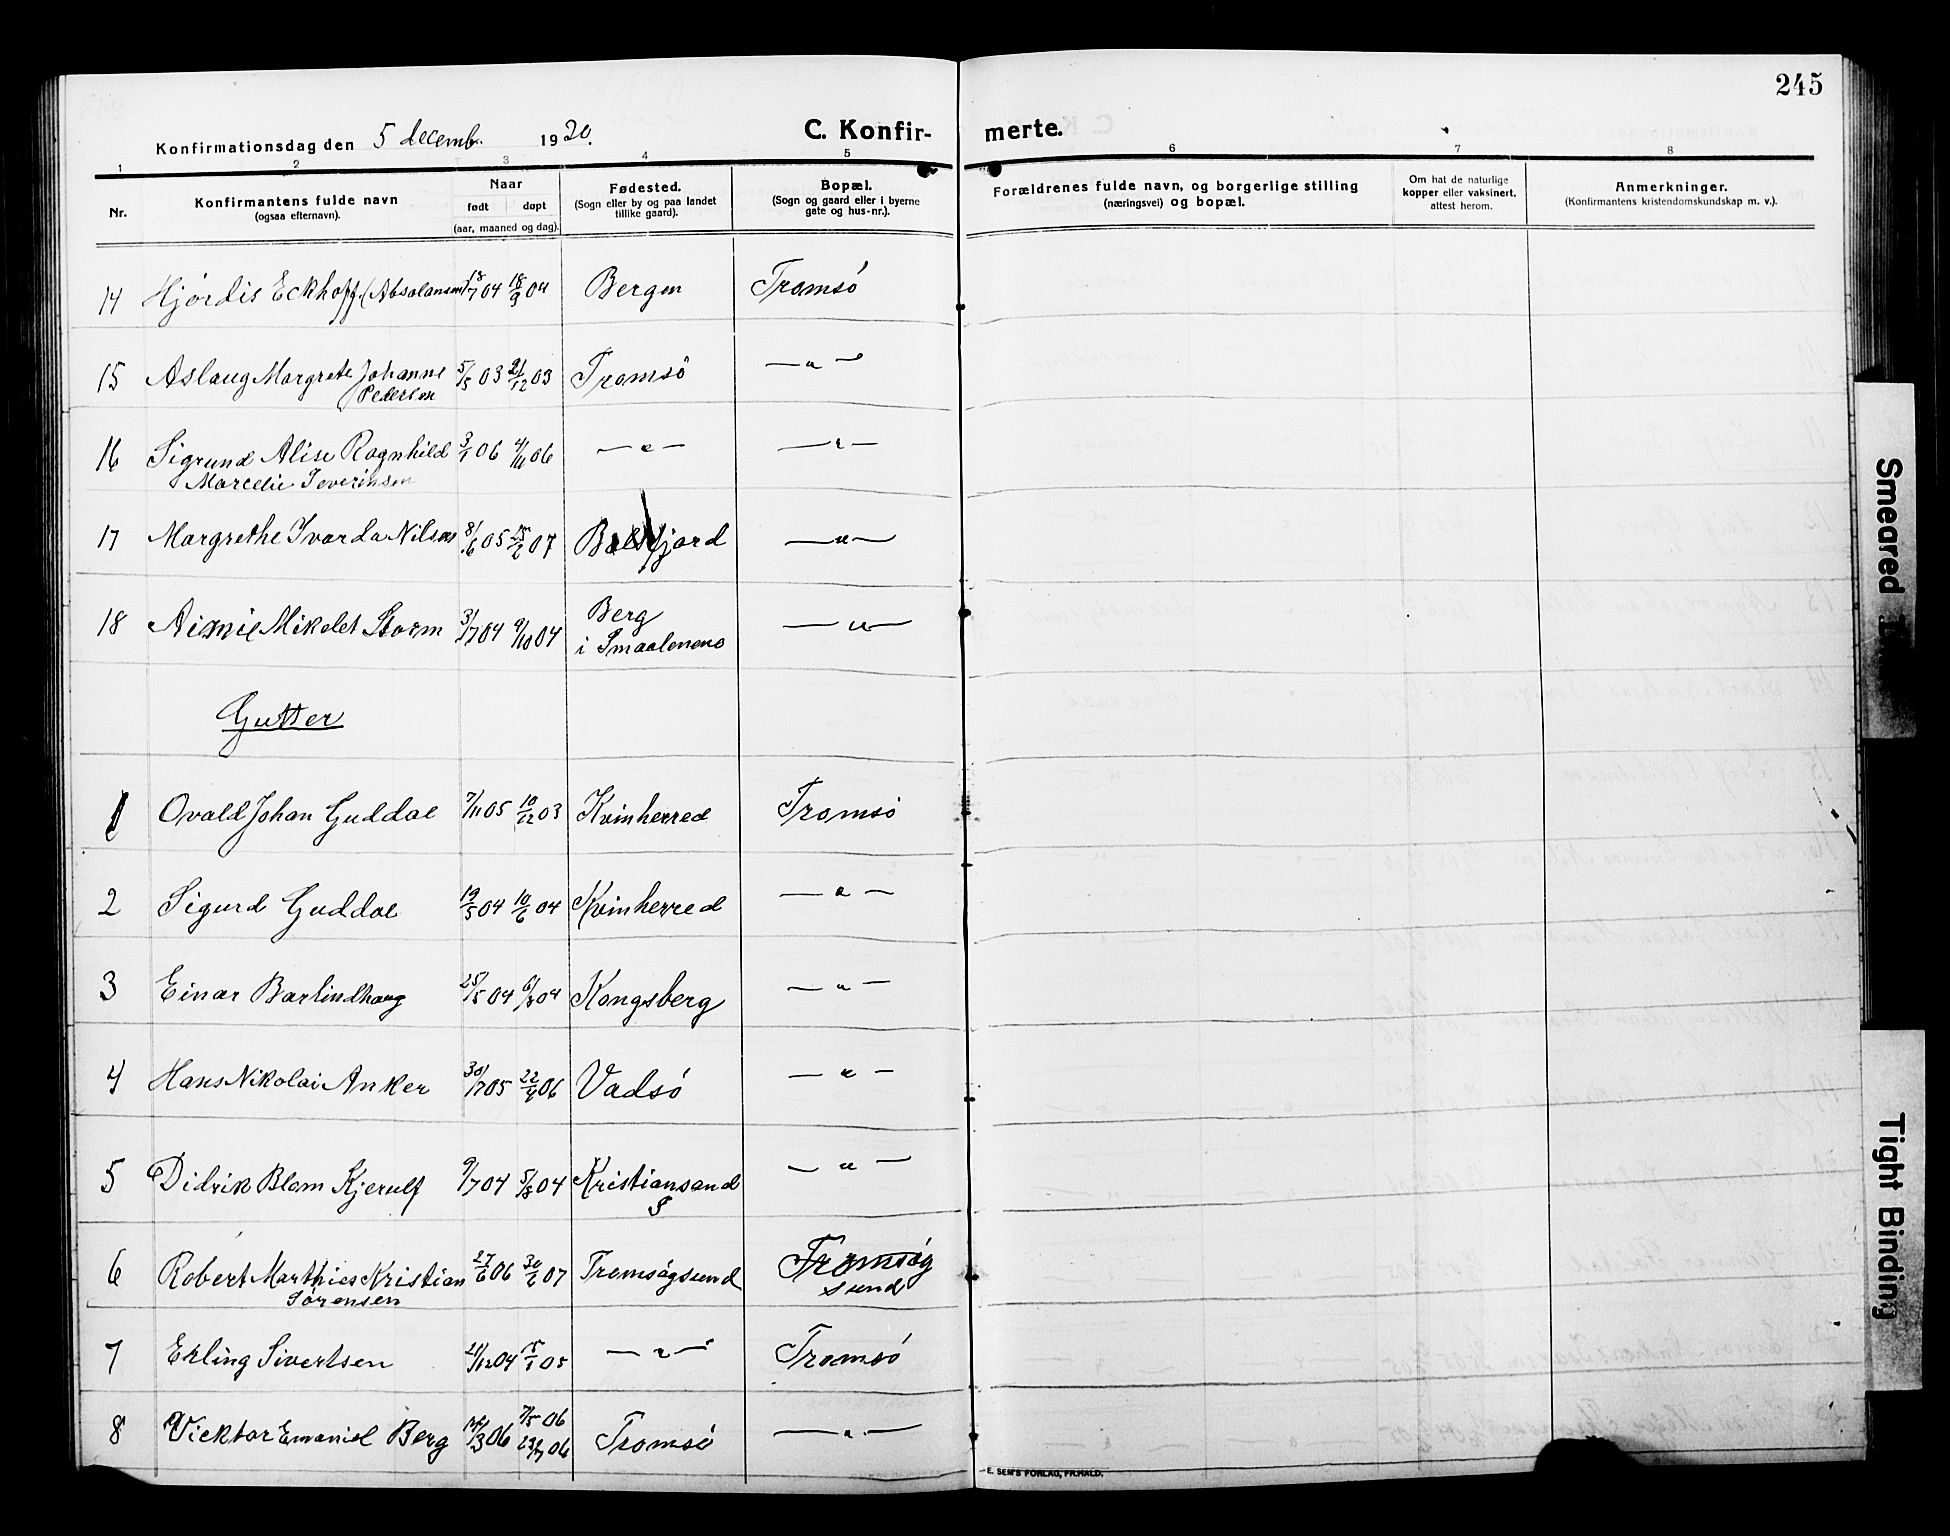 245
Konfirmationsdag den 5 decemb. 1920.
C. Konfirmerte.
1 2 3 4 5 6 7 8
Nr.
Konfirmantens fulde navn
(ogsaa efternavn).
Naar
født døpt
(aar, maaned og dag).
Fødested.
(Sogn eller by og paa landet
tillike gaard).
Bopæl.
(Sogn og gaard eller i byerne
gate og hus-nr.).
Forældrenes fulde navn, og borgerlige stilling
(næringsvei) og bopæl.
Om hat de naturlige
kopper eller vaksinert,
attest herom.
Anmerkninger.
(Konfirmantens kristendomskundskap m. v.).
14 Hjördis Eckhoff (Absalansen) 18/7 04 18/9 04 Bergen Tromsö
15 Aslaug Margrete Johanne 5/5 03 21/12 03 Tromsö — " —
Pedersen
16 Sigrund Alise Ragnhild 3/1 06 4/11 06 — " — — " —
Marcelie Severinsen
17 Margrethe Ivarda Nilsen 8/6 05 25/2 07 Balsfjord — " —
18 Mikelet Storm 31/7 04 9/10 04 Berg — " —
i Smaalenene
Gutter
1 Ovald Johan Guddal 7/11 05 10/12 03 Kvinherred Tromsö
2 Sigurd Guddal 19/5 04 10/6 04 Kvinherred — " —
3 Einar Barlindhaug 25/5 04 6/3 04 Kongsberg — " —
4 Hans Nikolai Anker 30/7 05 22/4 06 Vadsö — " —
5 Didrik Blom Kjerulf 9/7 04 5/8 04 Kristiansand — " —
S
6 Robert Marthies Kristian 27/6 06 30/6 07 Tromsögsund Tromsög
Sörensen sund
7 Erling Sivertsen 21/12 04 15/1 05 — " — Tromsö
8 Vicktor Emaniel Berg 14/3 06 7/5 06 Tromsö — " —
23/7 06
E. SEM'S FORLAG, FR.HALD.
Smeared
Tight Binding